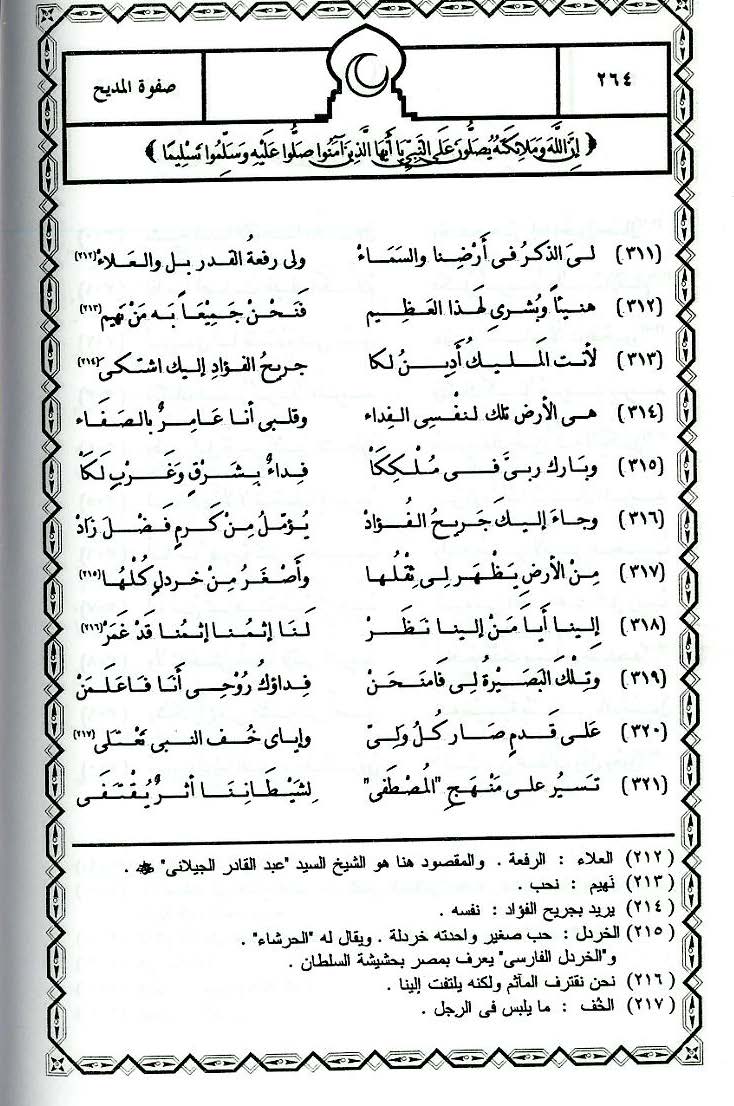 ٢٦٤ صفوة المديح
﴿ إِنَّ اللَّهَ وَمَلَائِكَتَهُ يُصَلُّونَ عَلَى النَّبِيِّ يَا أَيُّهَا الَّذِينَ آمَنُوا صَلُّوا عَلَيْهِ وَسَلِّمُوا تَسْلِيمًا ﴾
(٣١١) لىَ الذكرُ فى أَرْضِنا والسَمَاءْ ولى رفعةُ القدر بل والعَلاءْ(٢١٢)
(٣١٢) هنيئاً وبُشرى لهَذا العَظِيم فَنَحْنُ جَمِيْعَاً بَه مَنْ نَهيم(٢١٣)
(٣١٣) لأنت المَليكُ أُدِينُ لكا جريحُ الفؤادِ إليك اشتكى(٢١٤)
(٣١٤) هى الأرض تلك لنفْسِى الفِداء وقلبى أنا عَامِرٌ بالصَفَاء
(٣١٥) وبَارك ربىَّ فى مُلْكِكَا فِداءٌ بِشَرْقٍ وَغَرْبٍ لَكَا
(٣١٦) وجاءَ إليكَ جَرِيحُ الفُؤادْ يُؤمّلُ مِنْ كَرمٍ فَضْلَ زَادْ
(٣١٧) مِنْ الأرضِ يَظْهَر لِى ثِقْلُها وأَصْغَرُ مِنْ خردلٍ كُلْهَا(٢١٥)
(٣١٨) إلينا أَيَا مَنْ إلينا نَظَرْ لَنَا إثمُنا إثمُنا قدْ غَمَرْ(٢١٦)
(٣١٩) وتِلْكَ البَصَيْرةُ لِى فَامنَحَنْ فِداؤكُ رُوْحِى أَنَا فَاعَلَمَنْ
(٣٢٠) عَلى قَدمٍ صَار كُلُ وَلىّ وإياى خُف النبى تعْتلى(٢١٧)
(٣٢١) تسيُر على مَنْهَجِ "المُصْطَفى" لِشَيْطَانِنَا أثرٌ يُقْتَفَى
(٢١٢) العلاء : الرفعة . والمقصود هنا هو الشيخ السيد "عبد القادر الجيلانى" .
(٢١٣) نَهيم : نحب .
(٢١٤) يريد بجريح الفؤاد : نفسه .
(٢١٥) الخردل : حب صغير واحدته خردلة . ويقال له "الحرشاء" .
و"الخردل الفارسى" يعرف بمصر بحشيشة السلطان .
(٢١٦) نحن نقترف المآثم ولكنه يلتفت إلينا .
(٢١٧) الخُف : ما يلبس فى الرجل .